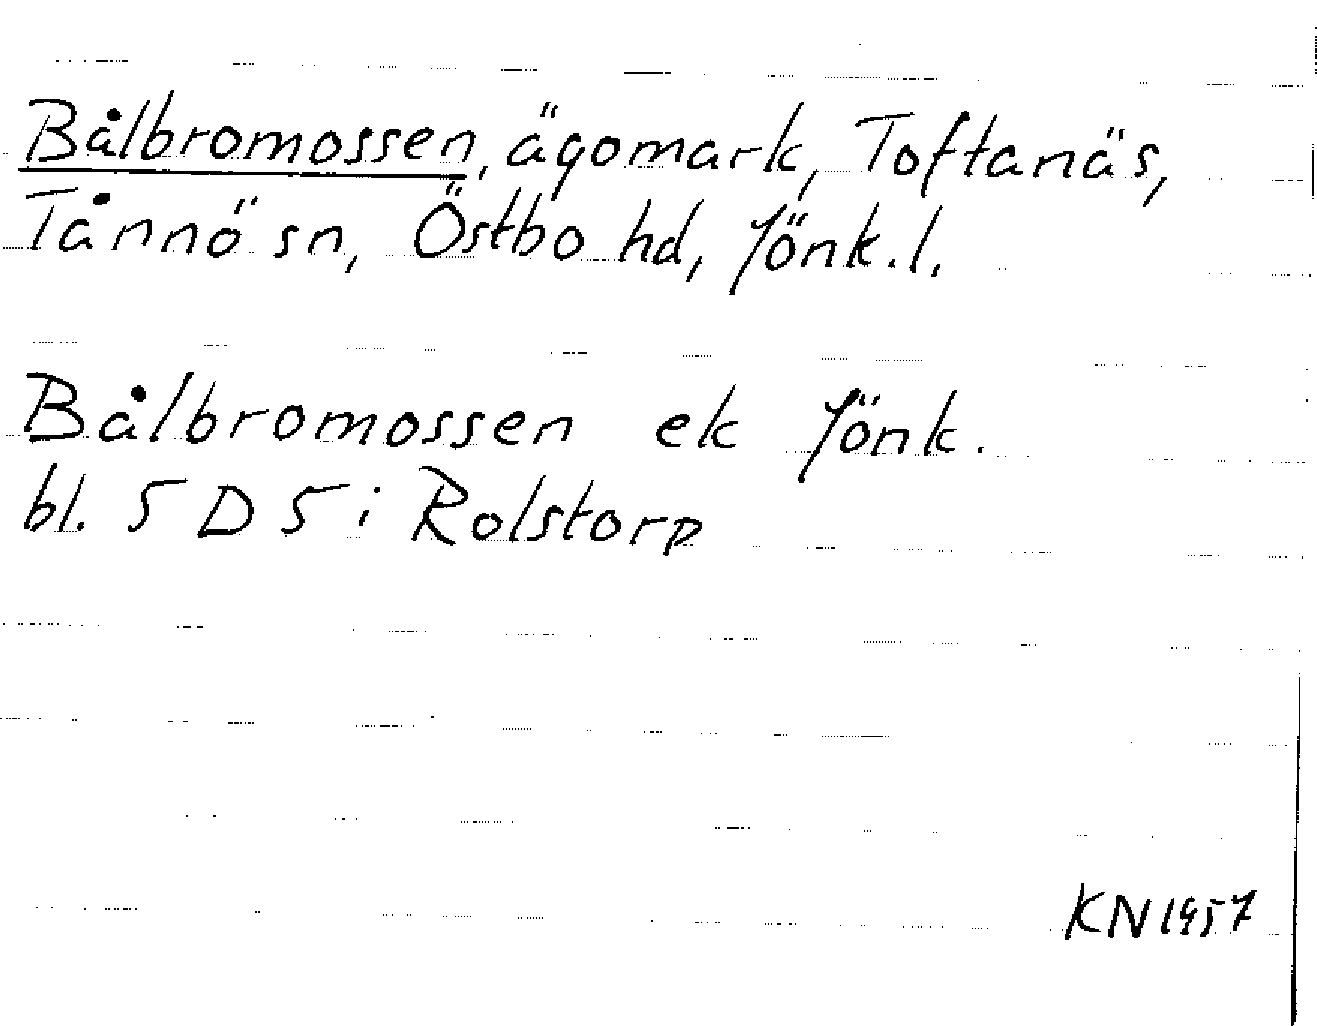 Bålbromossen, ägomark, Toftanäs,
Tånnö sn, Östbo hd, Jönk.l.
Bålbromossen ek Jönk.
bl. 5 D 5 i Rolstorp
KN 1957